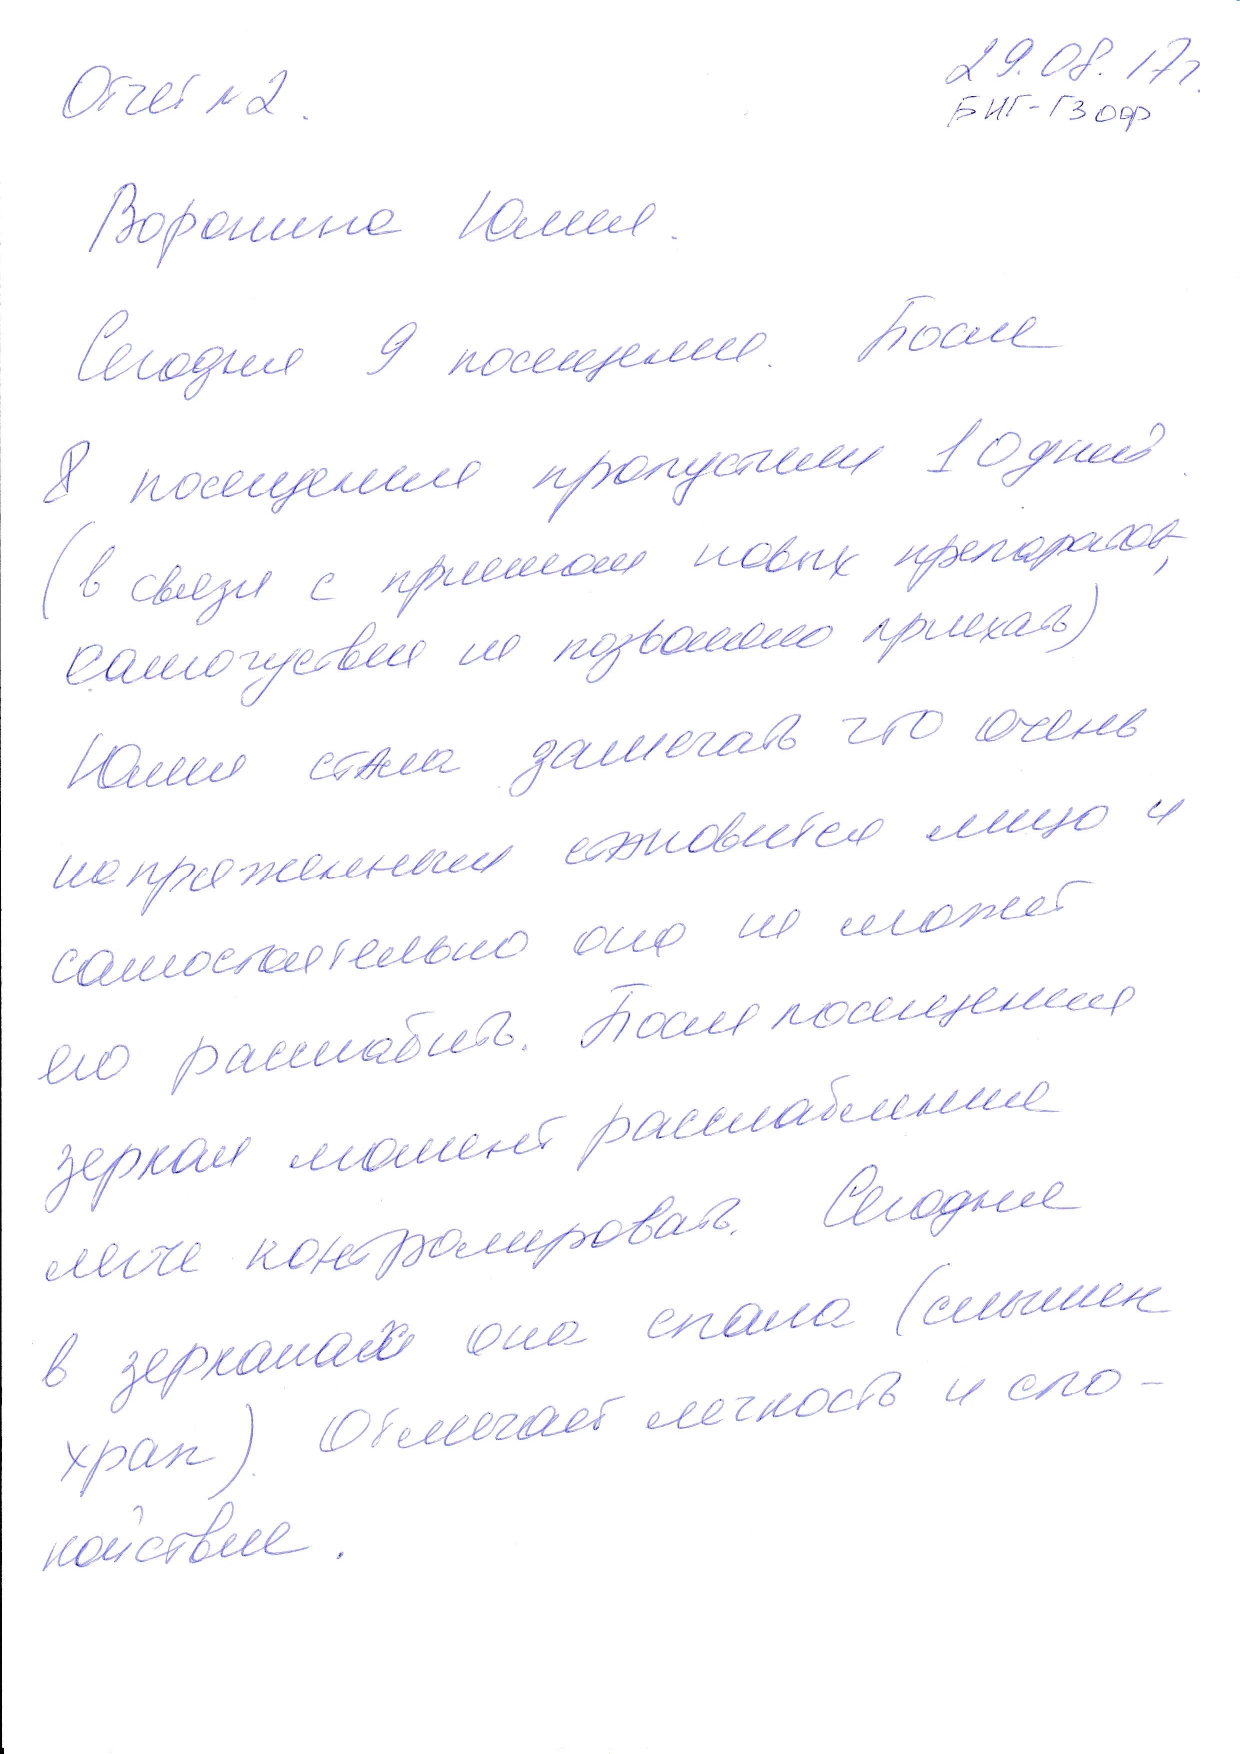 Отчет № 2.
29.08.17г.
БИГ-ГЗ ОФ
Воронина Юлия.
Сегодня 9 посещение. После
8 посещения пропустили 10 дней.
(в связи с приемом новых препаратов,
самочуствие не позволяло приехать)
Юлия стала замечать что очень
напряженным становится лицо и
самостоятельно она не может
его расслабить. После посещения
зеркал момент расслабления
легче контролировать. Сегодня
в зеркалах она спала (слышен
храп). Отмечает легкость и спо-
койствие.